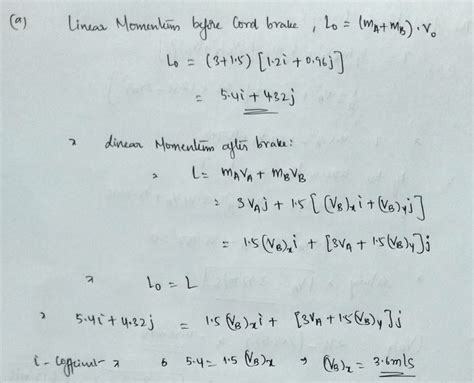 (a) Linear Momentum before Cord brake, L₀ = (mA+mB)·V₀
L₀ = (3+1.5) [1.2i + 0.96j]
= 5.4i + 4.32j
Linear Momentum after brake:
L = mAVA + mBVB
= 3VAj + 1.5 [(VB)x i + (VB)y j]
= 1.5(VB)x i + [3VA + 1.5(VB)y] j
L₀ = L
5.4i + 4.32j = 1.5 (VB)x i + [3VA + 1.5(VB)y] j
i - coefficient - 5.4 = 1.5 (VB)x → (VB)x = 3.6m/s